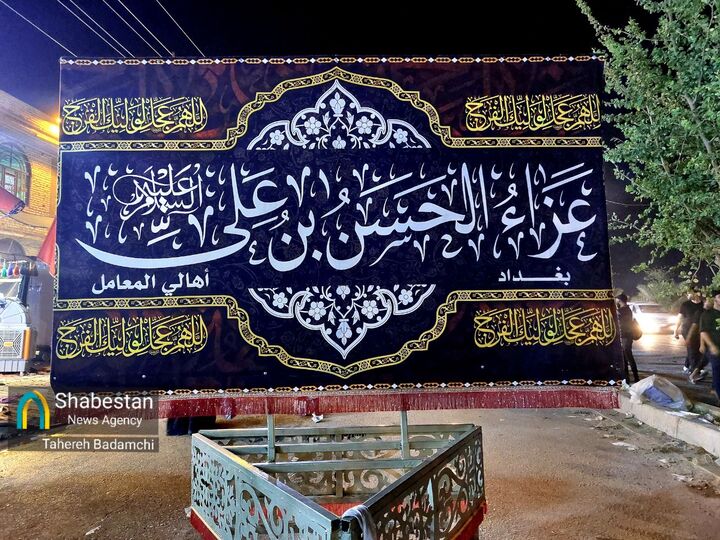 اللهم عجل لوليك الفرج اللهم عجل لوليك الفرج
عَزَاءُ الحَسَنِ بنِ عَلِيٍّ عَلَيْهِ السَّلام
بغداد أهالي المعامل
اللهم عجل لوليك الفرج اللهم عجل لوليك الفرج
Shabestan
News Agency
Tahereh Badamchi